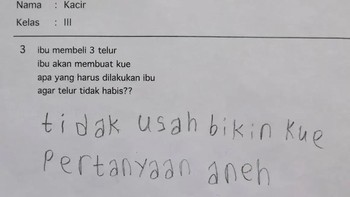 Nama : Kacir
Kelas : III
3 ibu membeli 3 telur
ibu akan membuat kue
apa yang harus dilakukan ibu
agar telur tidak habis??
tidak usah bikin kue
Pertanyaan aneh